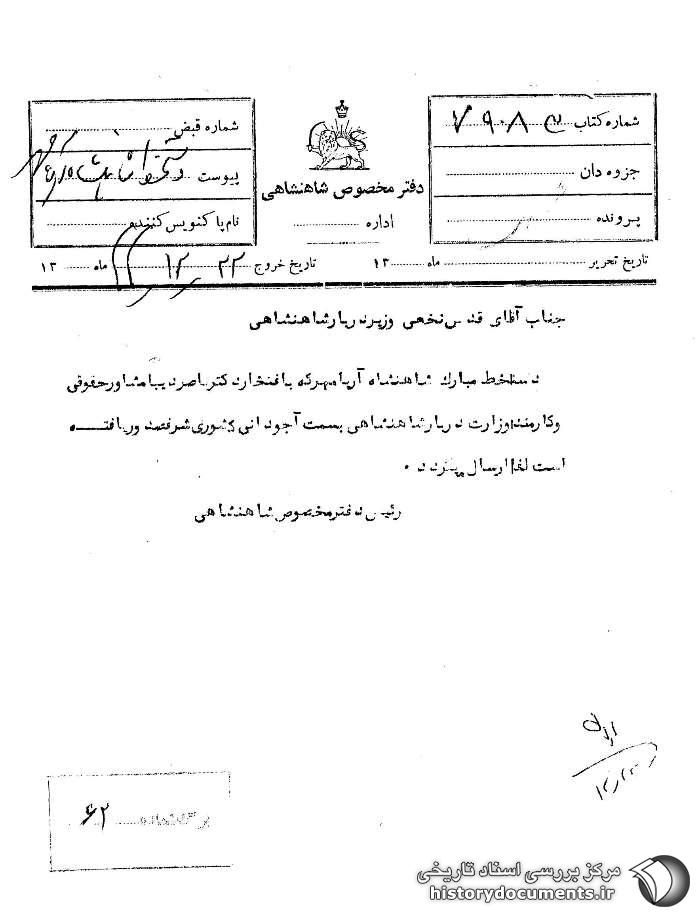 شماره کتاب ۷۹۰۸
جزوه دان
پرونده
دفتر مخصوص شاهنشاهی
اداره
شماره قبض
پیوست
نام پاکنویس کننده
تاریخ تحریر ماه ۱۳
تاریخ خروج ۲۲ ۱۲ ماه ۱۳
جناب آقای قدس نخعی وزیر دربار شاهنشاهی
دستخط مبارک شاهنشاه آریامهر که با فتخار دکتر ناصر دیبا مشاور حقوقی
و کارمند وزارت دربار شاهنشاهی بسمت آجودانی کشوری شرفصدور یافته
است لفا ارسال میگردد .
رئیس دفتر مخصوص شاهنشاهی
برگ شماره ۶۲
مرکز بررسی اسناد تاریخی
historydocuments.ir